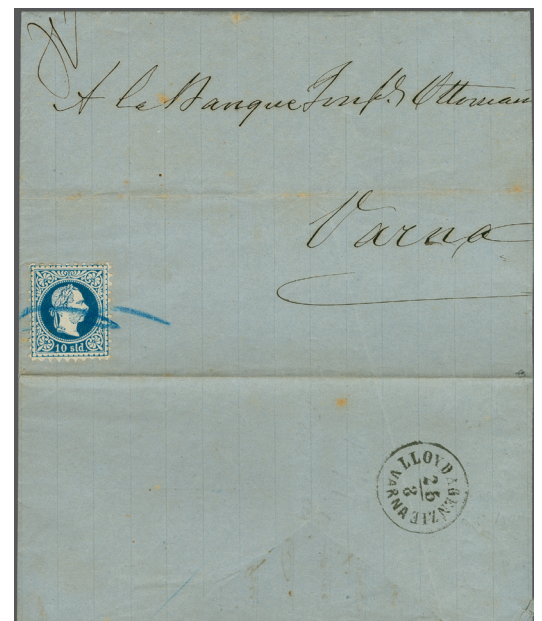 A la Banque Imp.le Ottoman
Varna
10 sld
LLOYD AGENZIE
25
8
VARNA